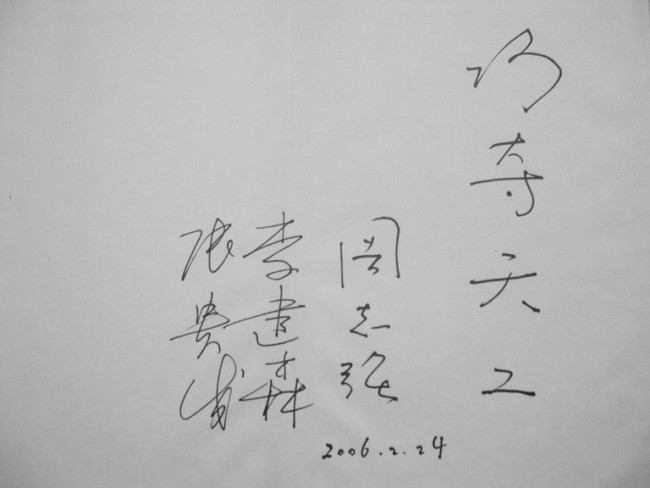 巧夺天工
周志强
李建森
张贵
2006.2.24